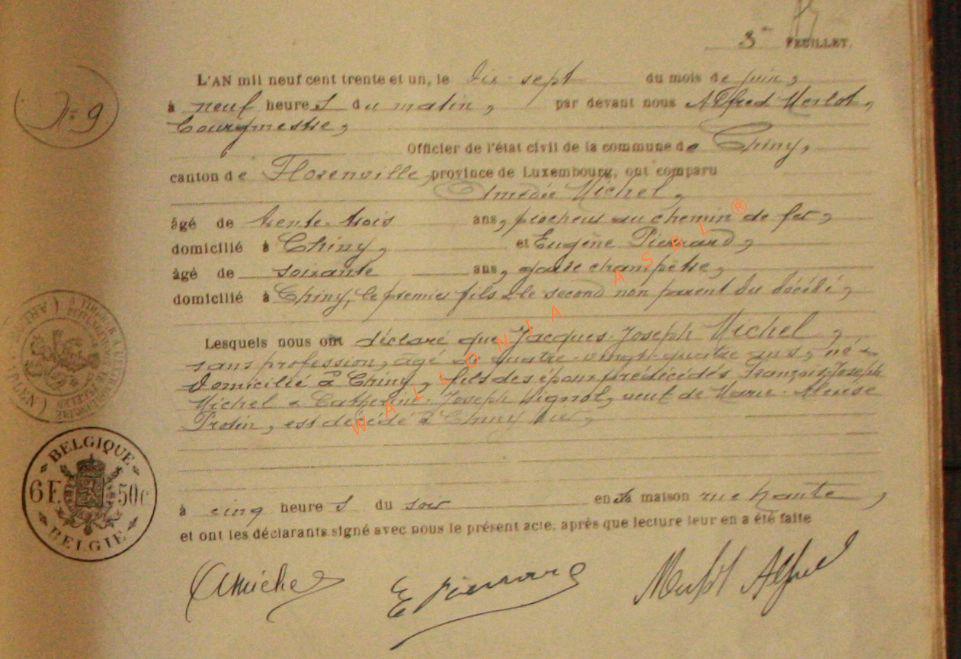 3me FEUILLET.
No 9
L'AN mil neuf cent trente et un, le dix-sept du mois de juin,
à neuf heures du matin, par devant nous Alfred Merlot,
bourgmestre,
Officier de l'état civil de la commune de Chiny,
canton de Florenville, province de Luxembourg, ont comparu
Amédée Michel,
âgé de trente-trois ans, piocheur au chemin de fer,
domicilié à Chiny, et Eugène Pierrard,
âgé de soixante ans, garde champêtre,
domicilié à Chiny, le premier fils & le second non parent du décédé,
Lesquels nous ont déclaré que Jacques-Joseph Michel,
sans profession, âgé de quatre-vingt-quatre ans, né &
domicilié à Chiny, fils des époux prédécédés François-Joseph
Michel & Catherine-Joseph Pignot, veuf de Marie
est décédé à Chiny hier,
à cinq heures du soir en sa maison rue haute,
et ont les déclarants signé avec nous le présent acte, après que lecture leur en a été faite
BELGIQUE
6 F. 50 c
BELGIË
AMichel
E Pierrard
Merlot Alfred
WALLONIA ASBL ®